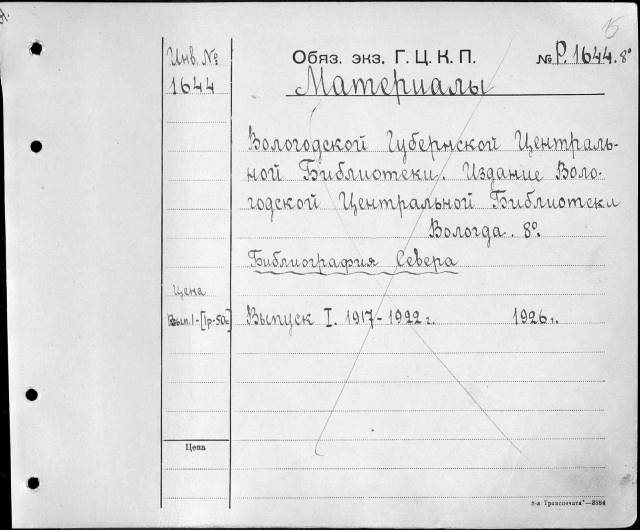 15
Инв. № 1644
Обяз. экз. Г. Ц. К. П. № Р. 1644. 8º
Материалы
Вологодской Губернской Централь-
ной Библиотеки. Издание Воло-
годской Центральной Библиотеки
Вологда. 8º.
Библиография Севера
Цена
Вып. 1-[1р-50к]
Выпуск I. 1917-1922 г. 1926 г.
Цена